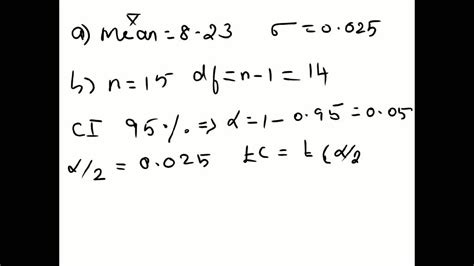 a) Mean = 8.23 σ = 0.025
x̄
b) n = 15 df = n-1 = 14
CI 95 % ⇒ α = 1 - 0.95 = 0.05
α/2 = 0.025 tc = t (α/2